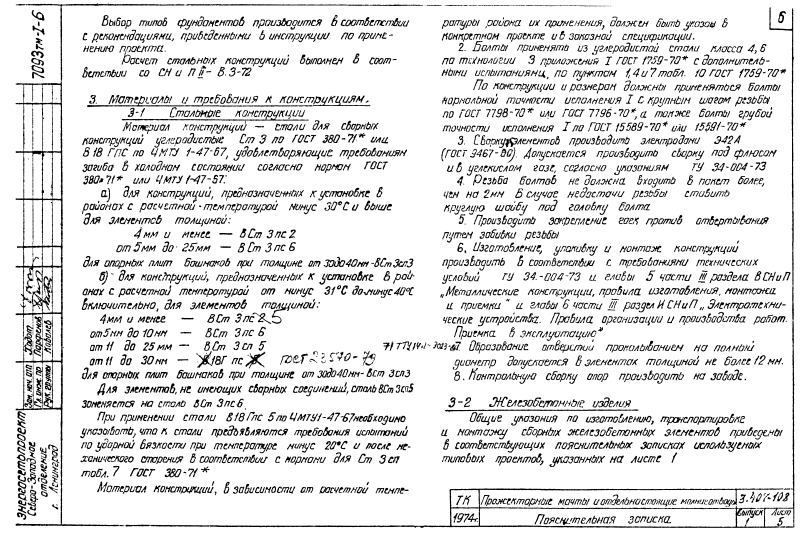 7093тм-I-6
Выбор типов фундаментов производится в соответствии
с рекомендациями, приведенными в инструкции по приме-
нению проекта.
Расчет стальных конструкций выполнен в соот-
ветствии со СН и П II- В.3-72
3. Материалы и требования к конструкциям.
3-1 Стальные конструкции
Материал конструкций — стали для сварных
конструкций углеродистые Ст 3 по ГОСТ 380-71* или
В 18 ГПС по 4МТУ 1-47-67, удовлетворяющие требованиям
загиба в холодном состоянии согласно нормам ГОСТ
380-71* или 4МТУ 1-47-67.
а) для конструкций, предназначенных к установке в
районах с расчетной температурой минус 30°С и выше
для элементов толщиной:
4 мм и менее — ВСт 3 пс 2
от 5 мм до 25 мм — ВСт 3 пс 6
для опорных плит башмаков при толщине от 30 до 40 мм - ВСт 3 сп 3
б) для конструкций, предназначенных к установке в рай-
онах с расчетной температурой от минус 31°С до минус 40°С
включительно, для элементов толщиной:
4 мм и менее — ВСт 3 пс 2 5
от 5 мм до 10 мм — ВСт 3 пс 6
от 11 до 25 мм — ВСт 3 сп 5
от 11 до 30 мм — В 18Г пс ГОСТ 23570-79
для опорных плит башмаков при толщине от 30 до 40 мм - ВСт 3 сп 3
Для элементов, не имеющих сварных соединений, сталь ВСт 3 сп 5
заменяется на сталь ВСт 3 пс 6.
При применении стали В 18 Гпс 5 по 4МТУ1-47-67 необходимо
указывать, что к стали предъявляются требования испытаний
по ударной вязкости при температуре минус 20°С и после ме-
ханического старения в соответствии с нормами для Ст 3 сп
табл. 7 ГОСТ 380-71*
Материал конструкций, в зависимости от расчетной темпе-
6
ратуры района их применения, должен быть указан в
конкретном проекте и в заказной спецификации.
2. Болты применять из углеродистой стали класса 4,6
по технологии 3 приложения I ГОСТ 1759-70* с дополнитель-
ными испытаниями, по пунктам 1,4 и 7 табл. 10 ГОСТ 1759-70*
По конструкции и размерам должны применяться болты
нормальной точности исполнения I с крупным шагом резьбы
по ГОСТ 7798-70* или ГОСТ 7796-70*, а также болты грубой
точности исполнения I по ГОСТ 15589-70* или 15591-70*
3. Сварку элементов производить электродами Э42А
(ГОСТ 9467-60). Допускается производить сварку под флюсом
и в углекислом газе, согласно указаниям ТУ 34-004-73
4. Резьба болтов не должна входить в пакет более,
чем на 2 мм В случае недостачи резьбы ставить
круглую шайбу под головку болта.
5. Производить закрепление гаек против отвертывания
путем забивки резьбы
6. Изготовление, упаковку и монтаж конструкций
производить в соответствии с требованиями технических
условий ТУ 34.-004-73 и главы 5 части III раздела В СНиП
„Металлические конструкции, правила изготовления, монтажа
и приемки" и главы 6 части III раздел И СНиП „Электротехни-
ческие устройства. Правила организации и производства работ.
Приемка в эксплуатацию"
7. Образование отверстий прокалыванием на полный
диаметр допускается в элементах толщиной не более 12 мм.
8. Контрольную сборку опор производить на заводе.
3-2 Железобетонные изделия
Общие указания по изготовлению, транспортировке
и монтажу сборных железобетонных элементов приведены
в соответствующих пояснительных записках используемых
типовых проектов, указанных на листе 1
Энергосетьпроект
Северо-Западное
отделение
г. Ленинград
ТК Прожекторные мачты и отдельностоящие молниеотводы 3.407-108
1974г. Пояснительная записка. Выпуск 1 Лист 5